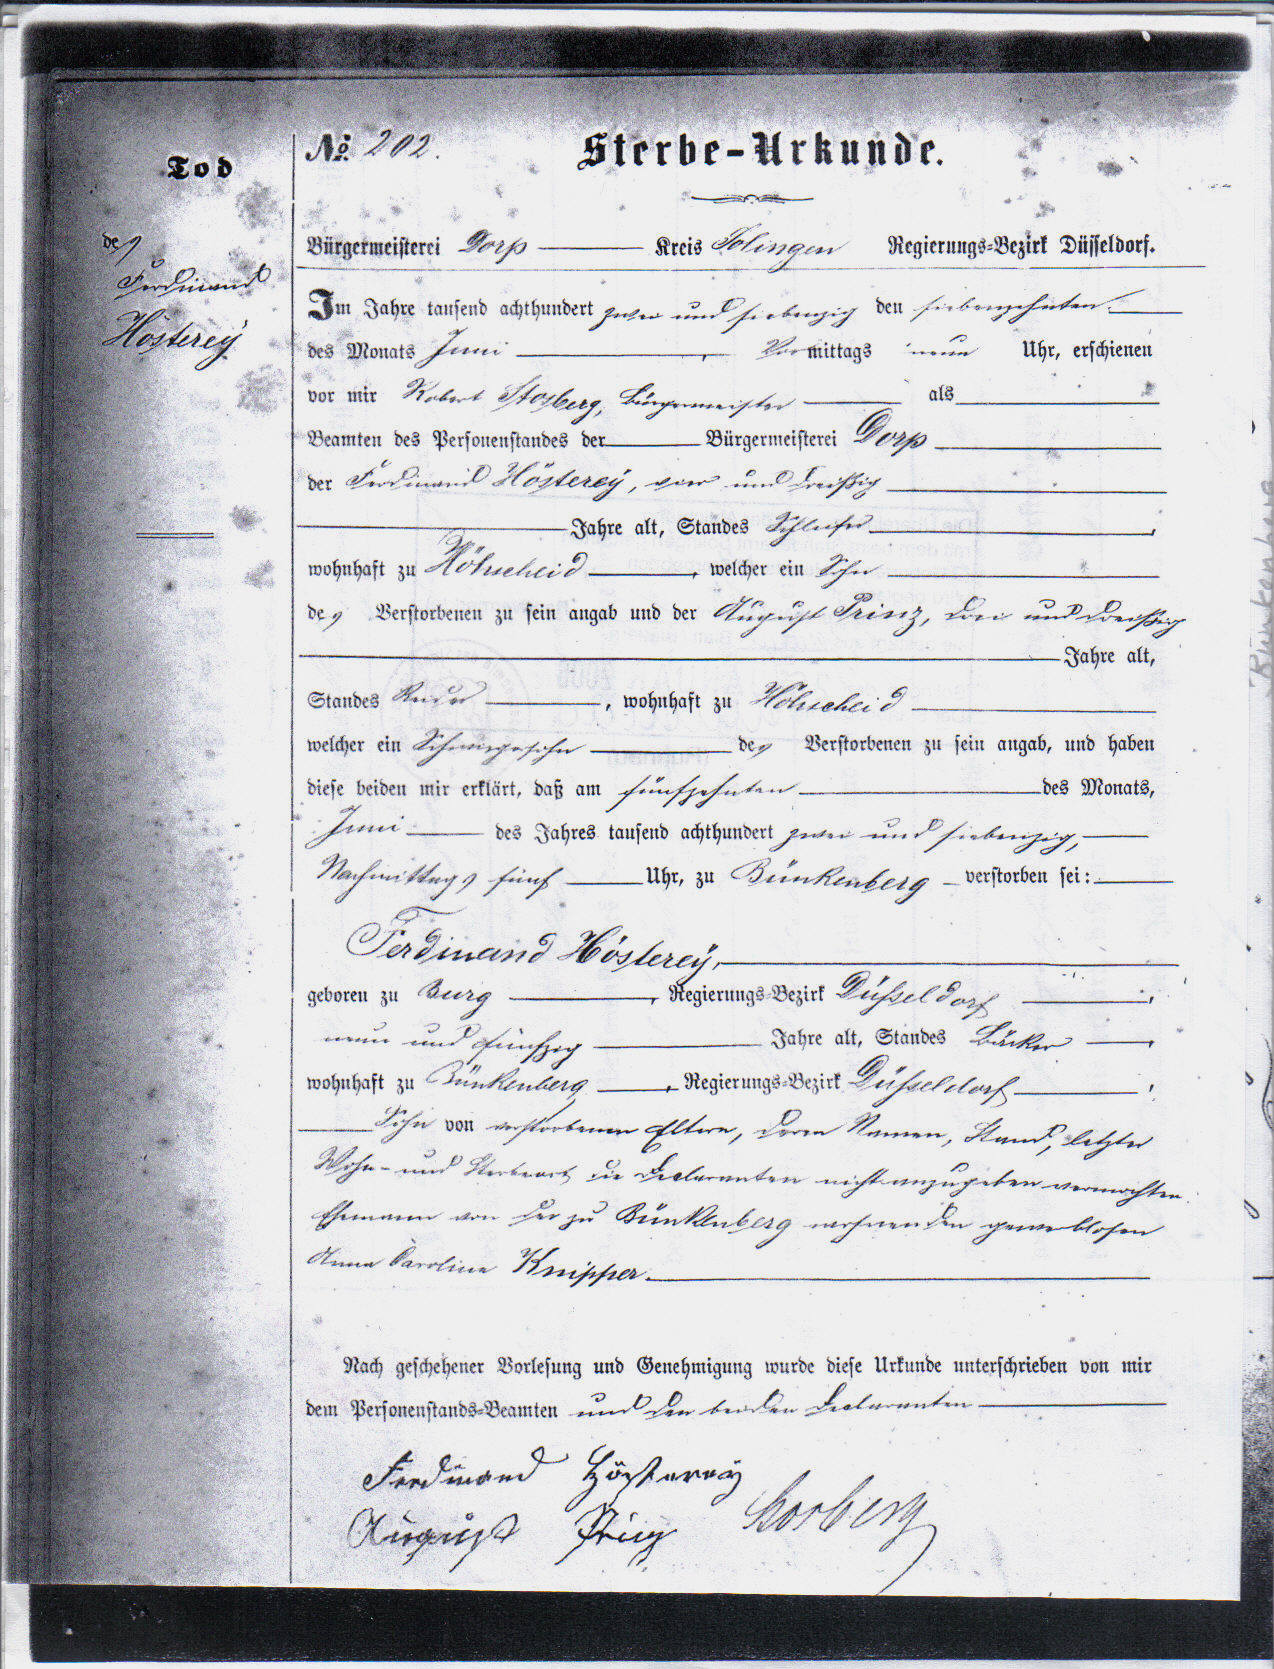 Tod
des
Ferdinand
Hösterey
No. 202.
Sterbe-Urkunde.
Bürgermeisterei Dorp Kreis Solingen Regierungs-Bezirk Düsseldorf.
Im Jahre tausend achthundert zwei und siebenzig den siebenzehnten
des Monats Juni, Vormittags neun Uhr, erschienen
vor mir Robert Stosberg, Bürgermeister als
Beamten des Personenstandes der Bürgermeisterei Dorp
der Ferdinand Hösterey, vier und dreißig
Jahre alt, Standes Schleifer,
wohnhaft zu Höhscheid, welcher ein Sohn
des Verstorbenen zu sein angab und der August Prinz, drei und dreißig
Jahre alt,
Standes, wohnhaft zu Höhscheid
welcher ein Schwiegersohn des Verstorbenen zu sein angab, und haben
diese beiden mir erklärt, daß am fünfzehnten des Monats,
Juni des Jahres tausend achthundert zwei und siebenzig,
Nachmittags fünf Uhr, zu Bünkenberg verstorben sei:
Ferdinand Hösterey,
geboren zu Burg, Regierungs-Bezirk Düsseldorf,
neun und fünfzig Jahre alt, Standes Bäcker,
wohnhaft zu Bünkenberg, Regierungs-Bezirk Düsseldorf,
Sohn von verstorbenen Eltern, deren Namen, Stand, letzter
Wohn- und Sterbeort die Declaranten nicht anzugeben vermochten.
Ehemann von der zu Bünkenberg wohnenden gewerblosen
Anna Carolina Knipper.
Nach geschehener Vorlesung und Genehmigung wurde diese Urkunde unterschrieben von mir
dem Personenstands-Beamten und den beiden Declaranten
Ferdinand Hösterey
August Prinz Stosberg
Bünkenberg